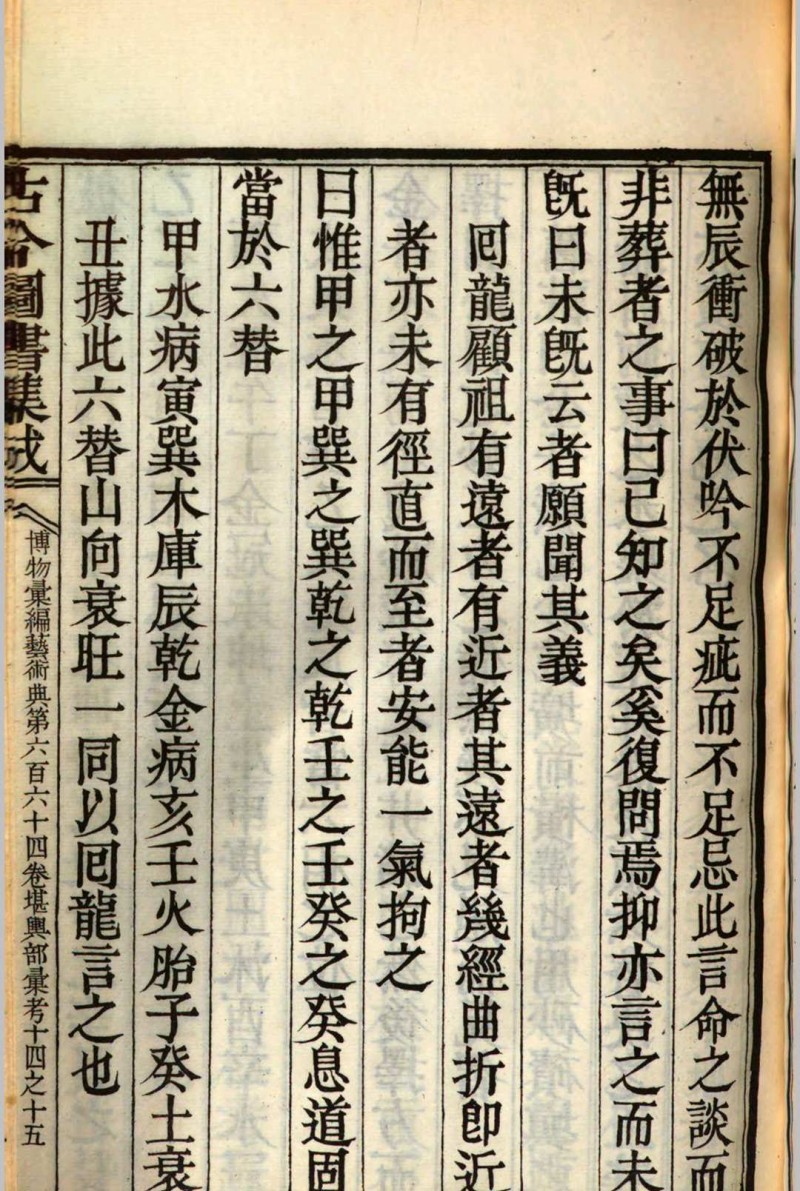 無辰衝破於伏吟不足疵而不足忌此言命之談而
非葬者之事曰已知之矣奚復問焉抑亦言之而未
旣曰未旣云者願聞其義
回龍顧祖有遠者有近者其遠者幾經曲折卽近
者亦未有徑直而至者安能一氣拘之
曰惟甲之甲巽之巽乾之乾壬之壬癸之癸息道固
當於六替
甲水病寅巽木庫辰乾金病亥壬火胎子癸土衰
丑據此六替山向衰旺一同以回龍言之也
古今圖書集成
博物彙編藝術典第六百六十四卷堪輿部彙考十四之十五